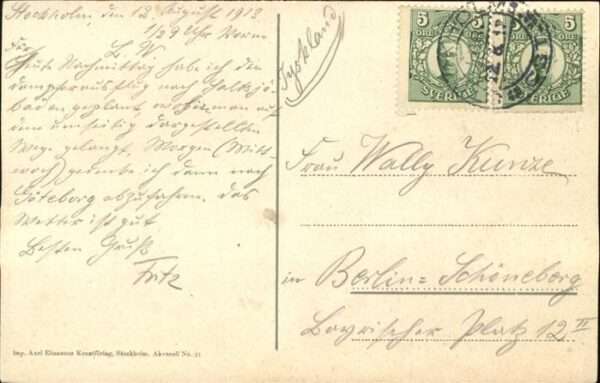 Stockholm, den 12. August 1913.
1/2 9 Uhr Vorm.
L. W.
Heute Nachmittag habe ich den
Dampferausflug nach Saltsjö-
baden geplant, wohin man auf
dem umseitig dargestellten
Wege gelangt. Morgen (Mitt-
woch) gedenke ich dann nach
Göteborg abzufahren. Das
Wetter ist gut.
Besten Gruß
Fritz
Tyskland
5 ÖRE
SVERIGE
5 ÖRE
SVERIGE
Frau Wally Kunze
in Berlin=Schöneberg
Bayrischer Platz 12 II
Imp. Axel Eliassons Konstförlag, Stockholm. Akvarell No. 21